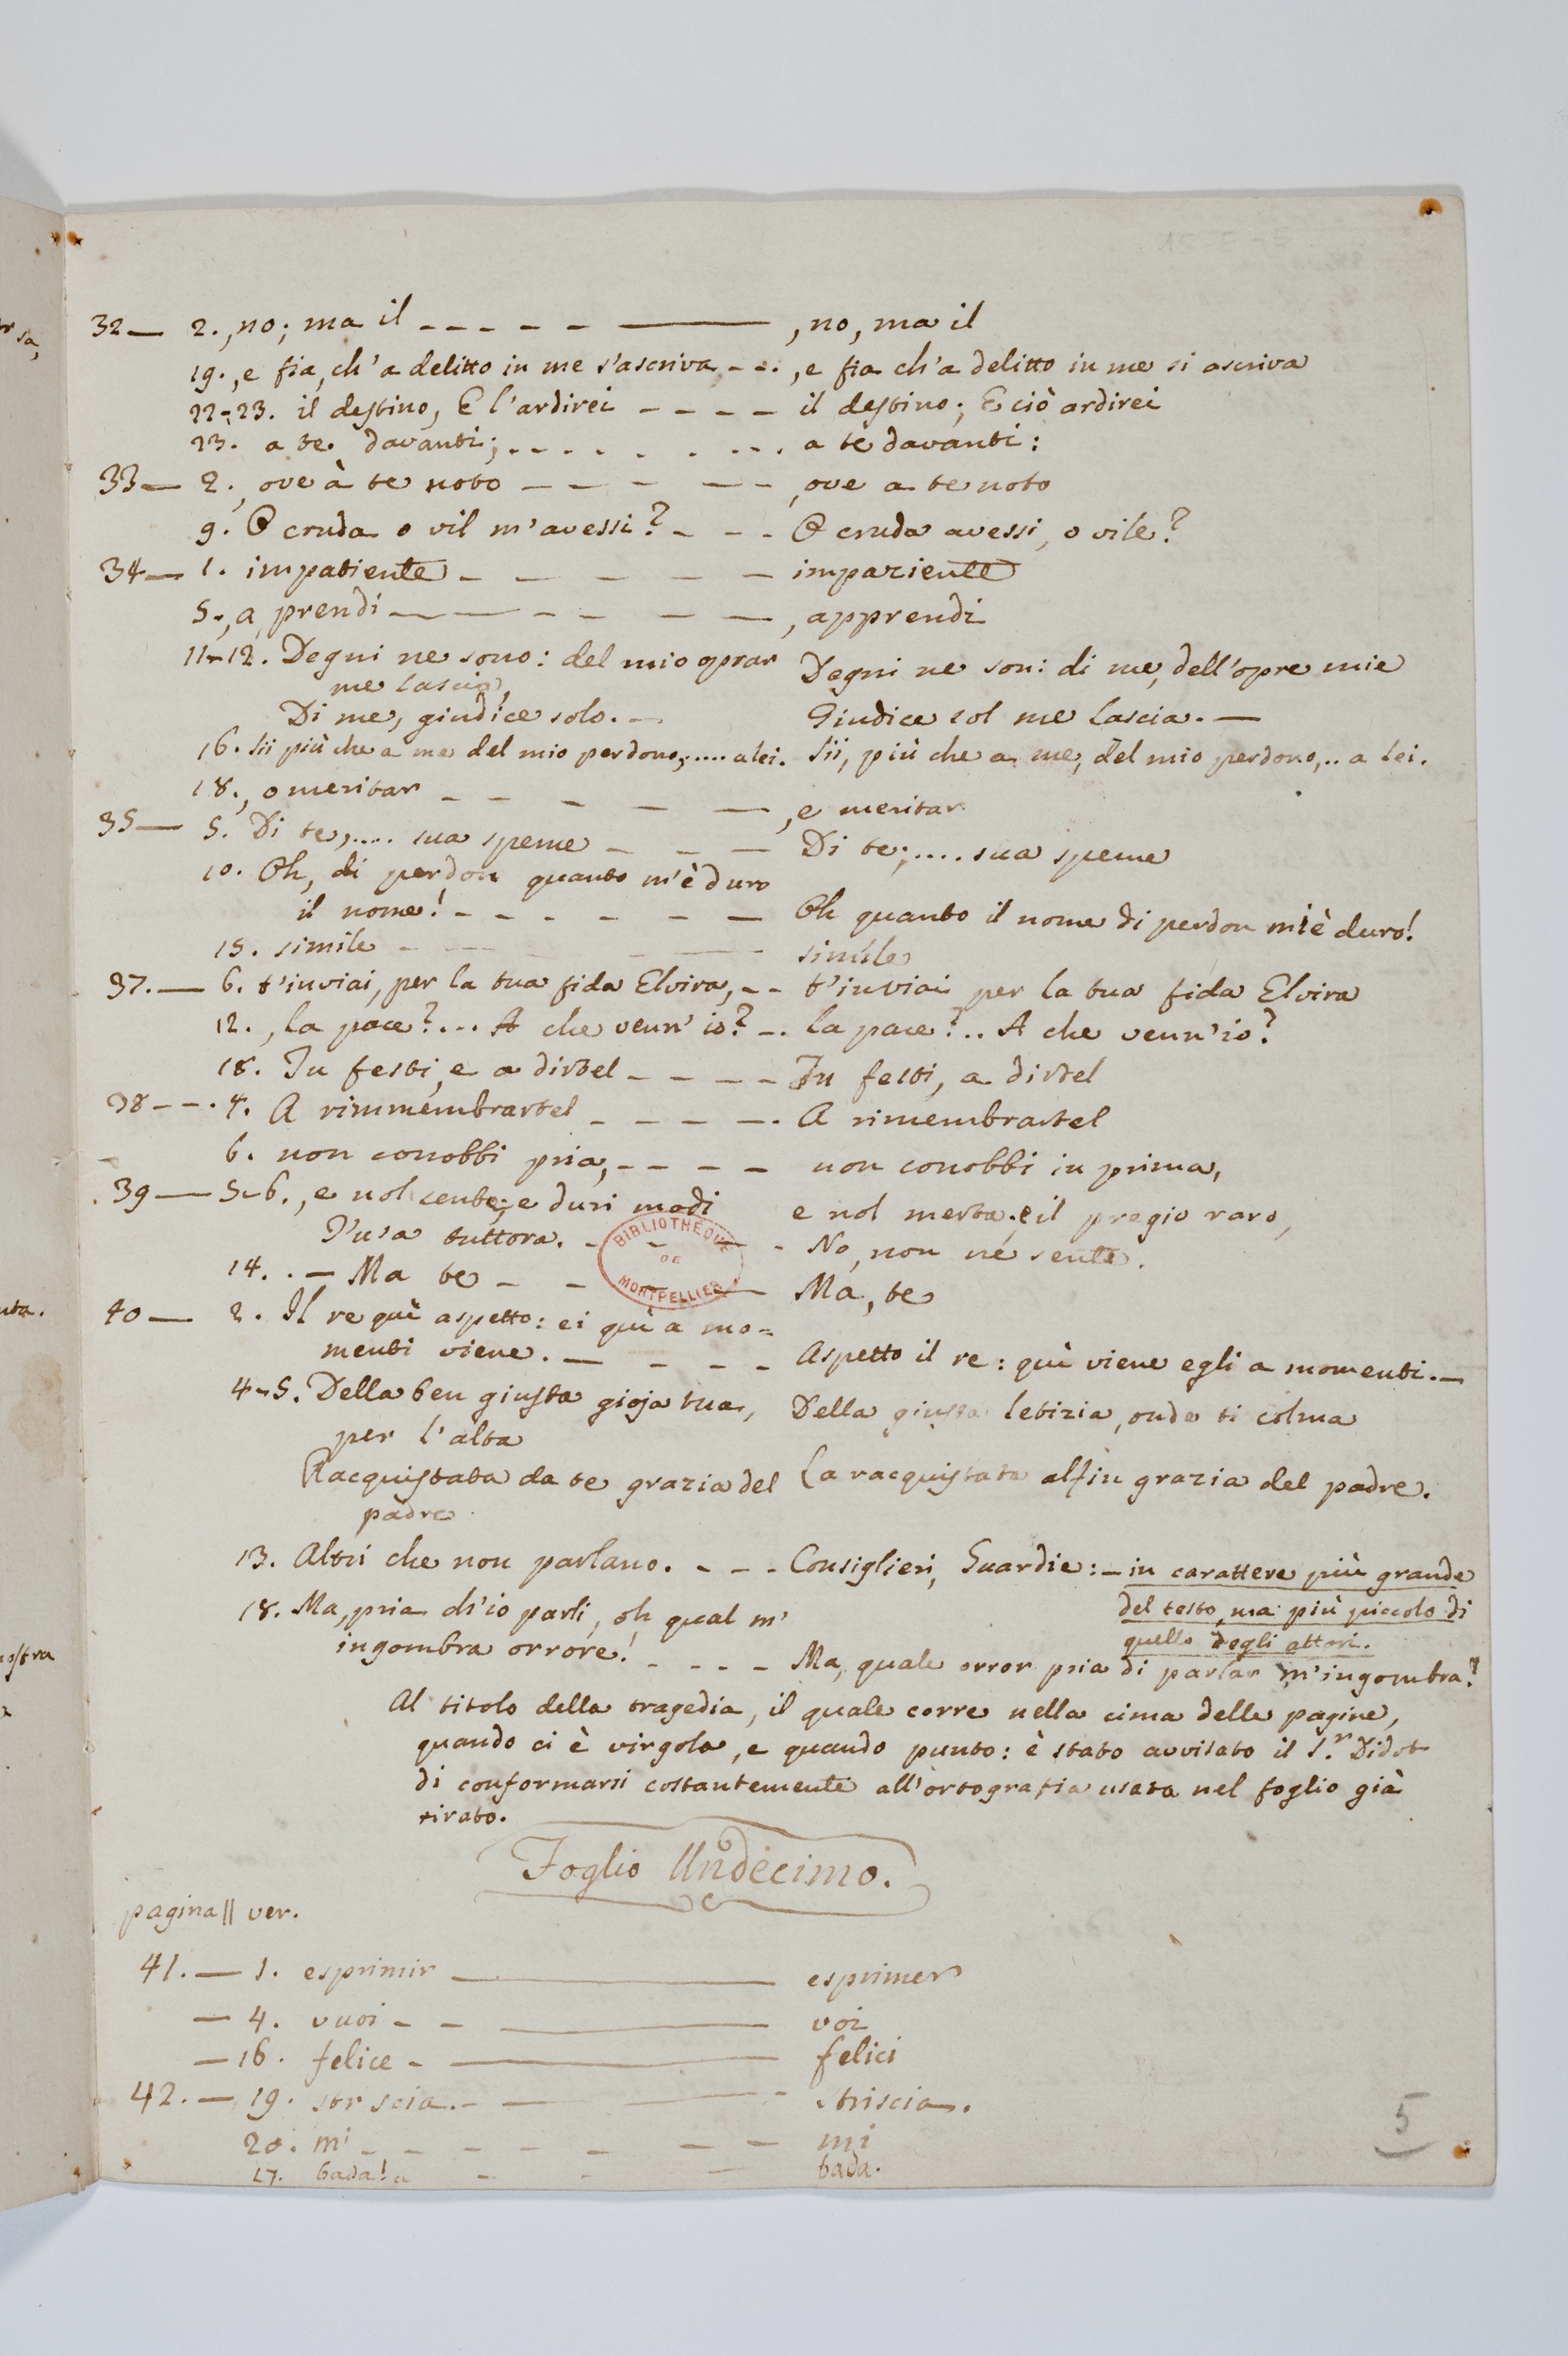 32— 2. , no; ma il - - - - - —— , no, ma il
19. , e fia, ch'a delitto in me s'ascriva - - . , e fia ch'a delitto in me si ascriva
22-23. il destino, E l'ardirei - - - - il destino; E ciò ardirei
23. a te. davanti; . - - . . . - - . a te davanti:
33— 2. , ove à te noto - - - - - , ove a te noto
9. O cruda o vil m'avessi? - - - O cruda avessi, o vile?
34— 1. impatiente - - - - - - impaziente
5. , a prendi — — - - - — , apprendi
11-12. Degni ne sono: del mio oprar Degni ne son: di me, dell'opre mie
me lascia,
Di me, giudice solo. — Giudice sol me lascia. —
16. Sii più che a me del mio perdono, .... a lei. Sii, più che a me, del mio perdono, .. a lei.
18. , o meritar - - - - - , e meritar
35— 5. Di te, .... sua speme - - - Di te; .... sua speme
10. Oh, di perdon quanto m'è duro
il nome! - - - - - - Oh quanto il nome di perdon m'è duro!
15. simile - - - - simíle
37. — 6. t'inviai, per la tua fida Elvira, - - t'inviai per la tua fida Elvira
12. , la pace? ... A che venn' io? - . la pace? .. A che venn'io?
18. Tu festi, e a dirtel - - - - Tu festi, a dirtel
38 - - . 4. A rimmembrartel - - - - . A rimembrartel
6. non conobbi pria, - - - - non conobbi in prima,
39— 5-6. , e nol sente; e duri modi e nol merta; e il pregio raro,
V'usa tuttora. - - - - No, non ne sente.
14. . — Ma te - - - - Ma, te
40— 2. Il re quì aspetto: ei quì a mo=
menti viene. — - - - Aspetto il re: quì viene egli a momenti. —
4-5. Della ben giusta gioja tua, Della giusta letizia, onde ti colma
per l'alta
Racquistata da te grazia del La racquistata alfin grazia del padre.
padre
13. Altri che non parlano. - - - Consiglieri, Guardie: — in carattere più grande
del testo, ma più piccolo di
quello degli attori.
18. Ma, pria ch'io parli, oh qual m'
ingombra orrore! - - - - Ma, quale orror pria di parlar m'ingombra?
Al titolo della tragedia, il quale corre nella cima delle pagine,
quando ci è virgola, e quando punto: è stato avvisato il S.r Didot
di conformarsi costantemente all'ortografia usata nel foglio già
tirato.
Foglio Undecimo.
pagina || ver.
41. — 1. esprimir —— esprimer
— 4. vuoi - - —— voi
— 16. felice - —— felici
42. — 19. str scia. - — - striscia.
20. m' - - - - - - - mi
27. bada! - - - bada.
BIBLIOTHEQUE
DE
MONTPELLIER
5